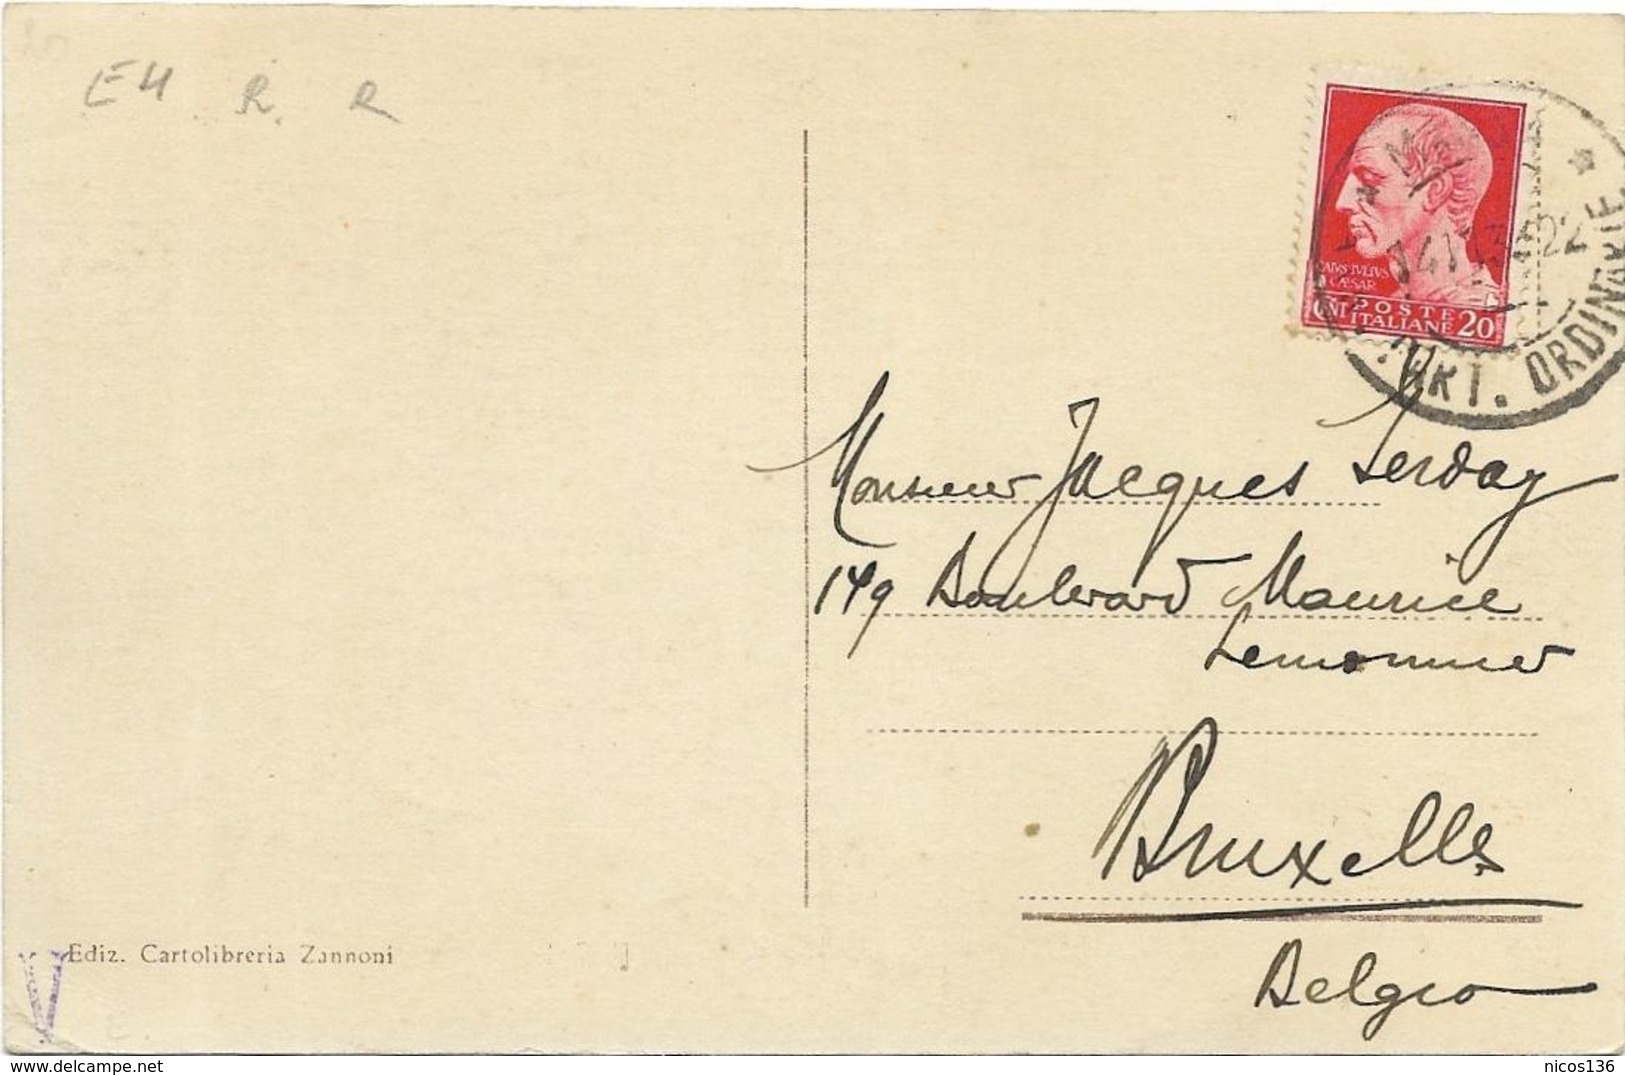 EH R. R
CAIVS·IVLIVS
CÆSAR
POSTE
ITALIANE 20
ART. ORDINARIE
Monsieur Jacques Lerday
149 Boulevard Maurice
Lemonnier
Bruxelles
Belgio
Ediz. Cartolibreria Zannoni
nicos136
www.delcampe.net